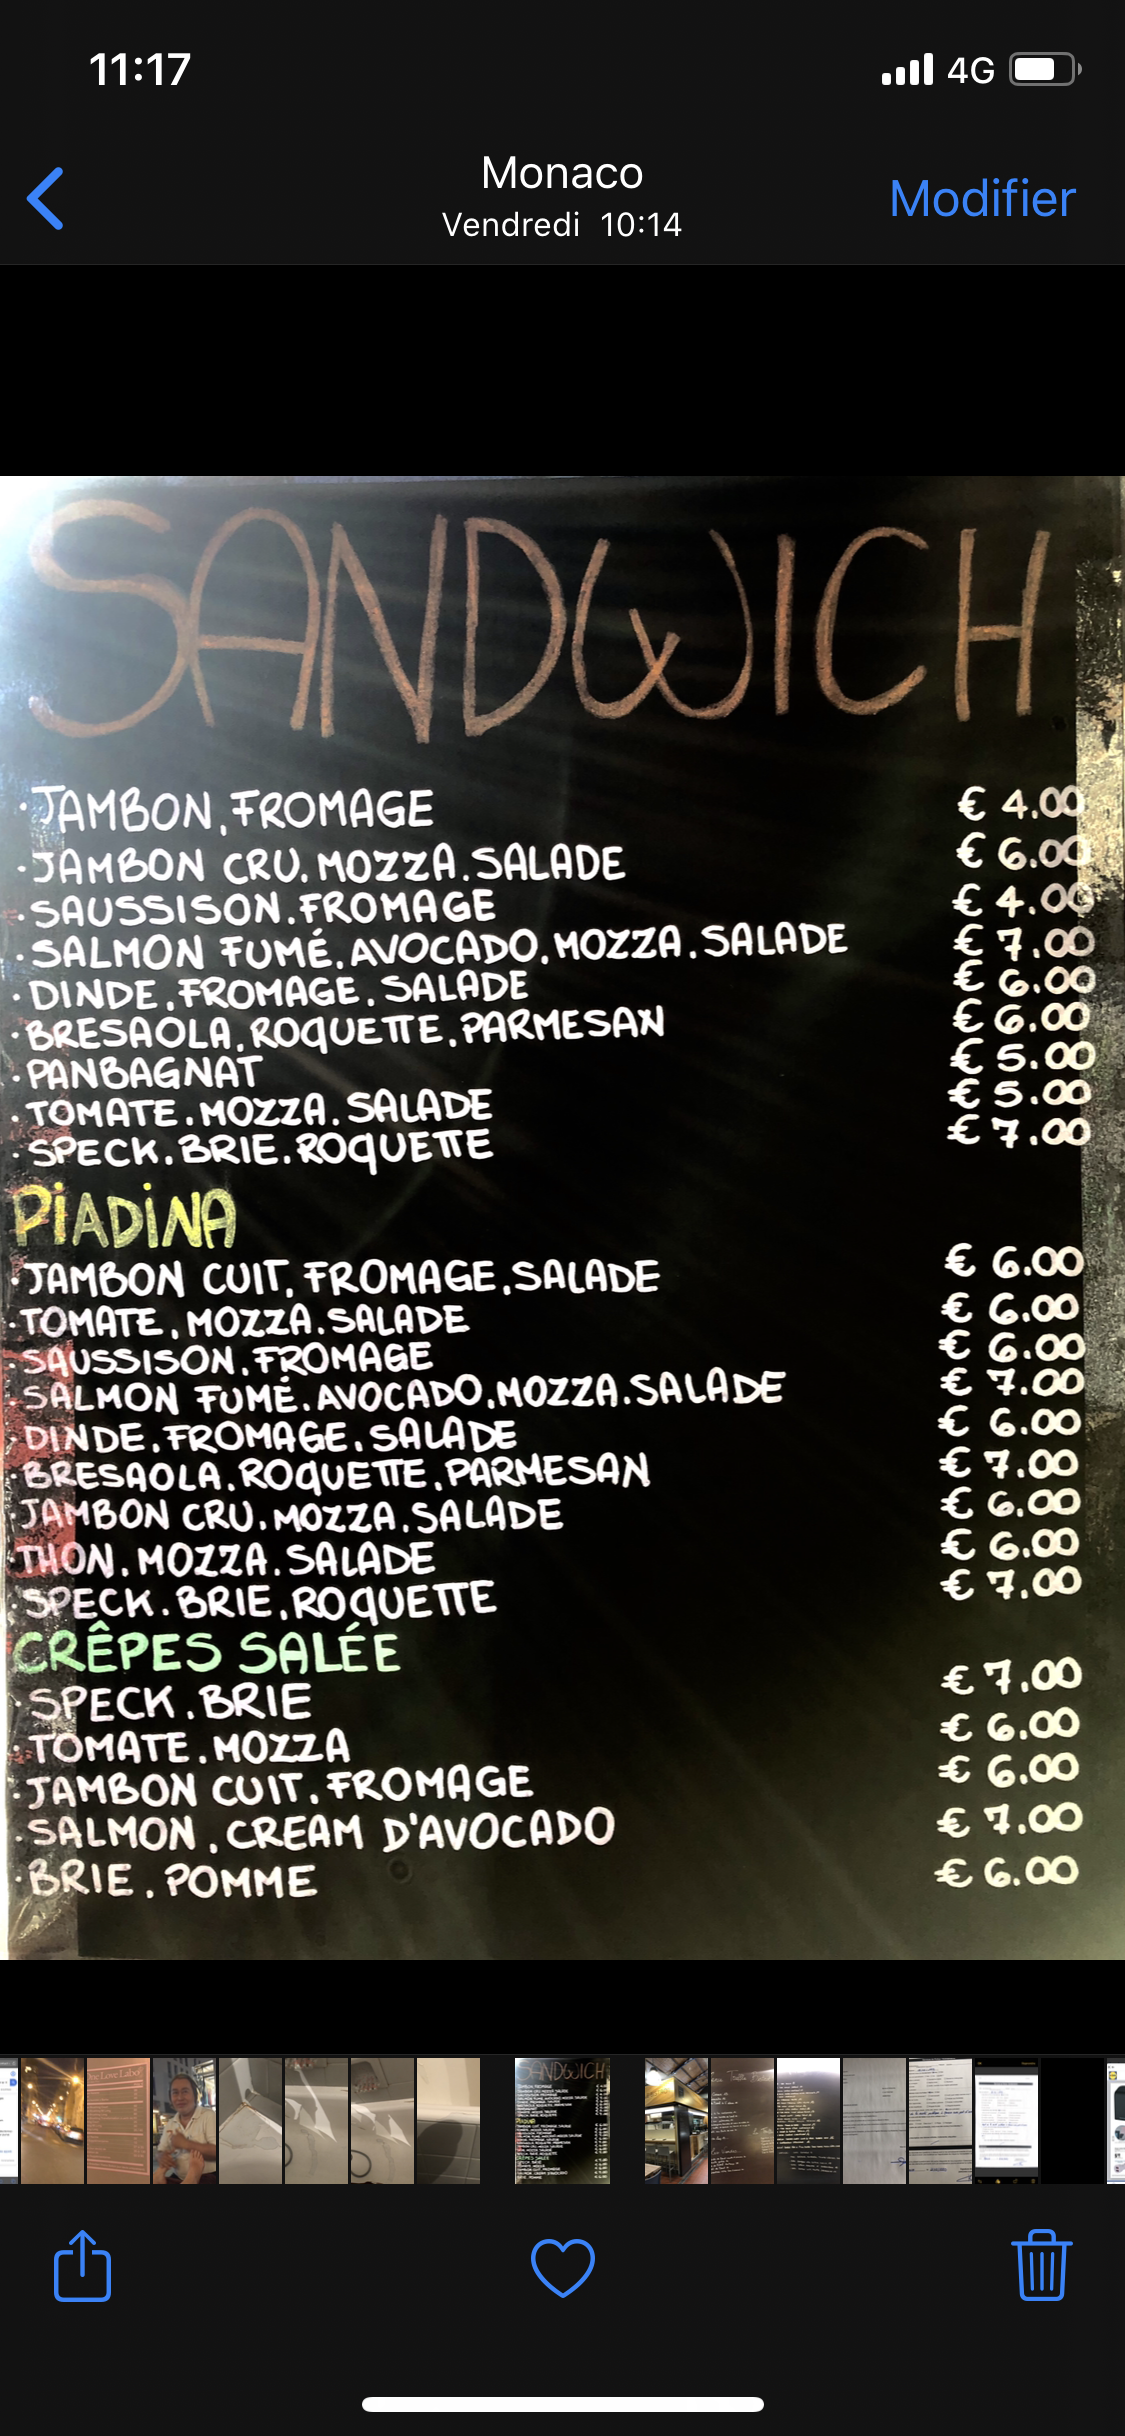 11:17
4G
Monaco
Vendredi 10:14
Modifier
SANDWICH
·JAMBON,FROMAGE € 4.00
·JAMBON CRU.MOZZA.SALADE € 6.00
·SAUSSISON.FROMAGE € 4.00
·SALMON FUMÉ.AVOCADO.MOZZA.SALADE € 7.00
·DINDE.FROMAGE.SALADE € 6.00
·BRESAOLA.ROQUETTE.PARMESAN € 6.00
·PANBAGNAT € 5.00
·TOMATE.MOZZA.SALADE € 5.00
·SPECK.BRIE.ROQUETTE € 7.00
PIADINA
·JAMBON CUIT, FROMAGE.SALADE € 6.00
·TOMATE.MOZZA.SALADE € 6.00
·SAUSSISON.FROMAGE € 6.00
·SALMON FUMÉ.AVOCADO.MOZZA.SALADE € 7.00
·DINDE.FROMAGE.SALADE € 6.00
·BRESAOLA.ROQUETTE.PARMESAN € 7.00
·JAMBON CRU.MOZZA.SALADE € 6.00
·THON.MOZZA.SALADE € 6.00
·SPECK.BRIE.ROQUETTE € 7.00
CRÊPES SALÉE
·SPECK.BRIE € 7.00
·TOMATE.MOZZA € 6.00
·JAMBON CUIT.FROMAGE € 6.00
·SALMON.CREAM D'AVOCADO € 7.00
·BRIE.POMME € 6.00